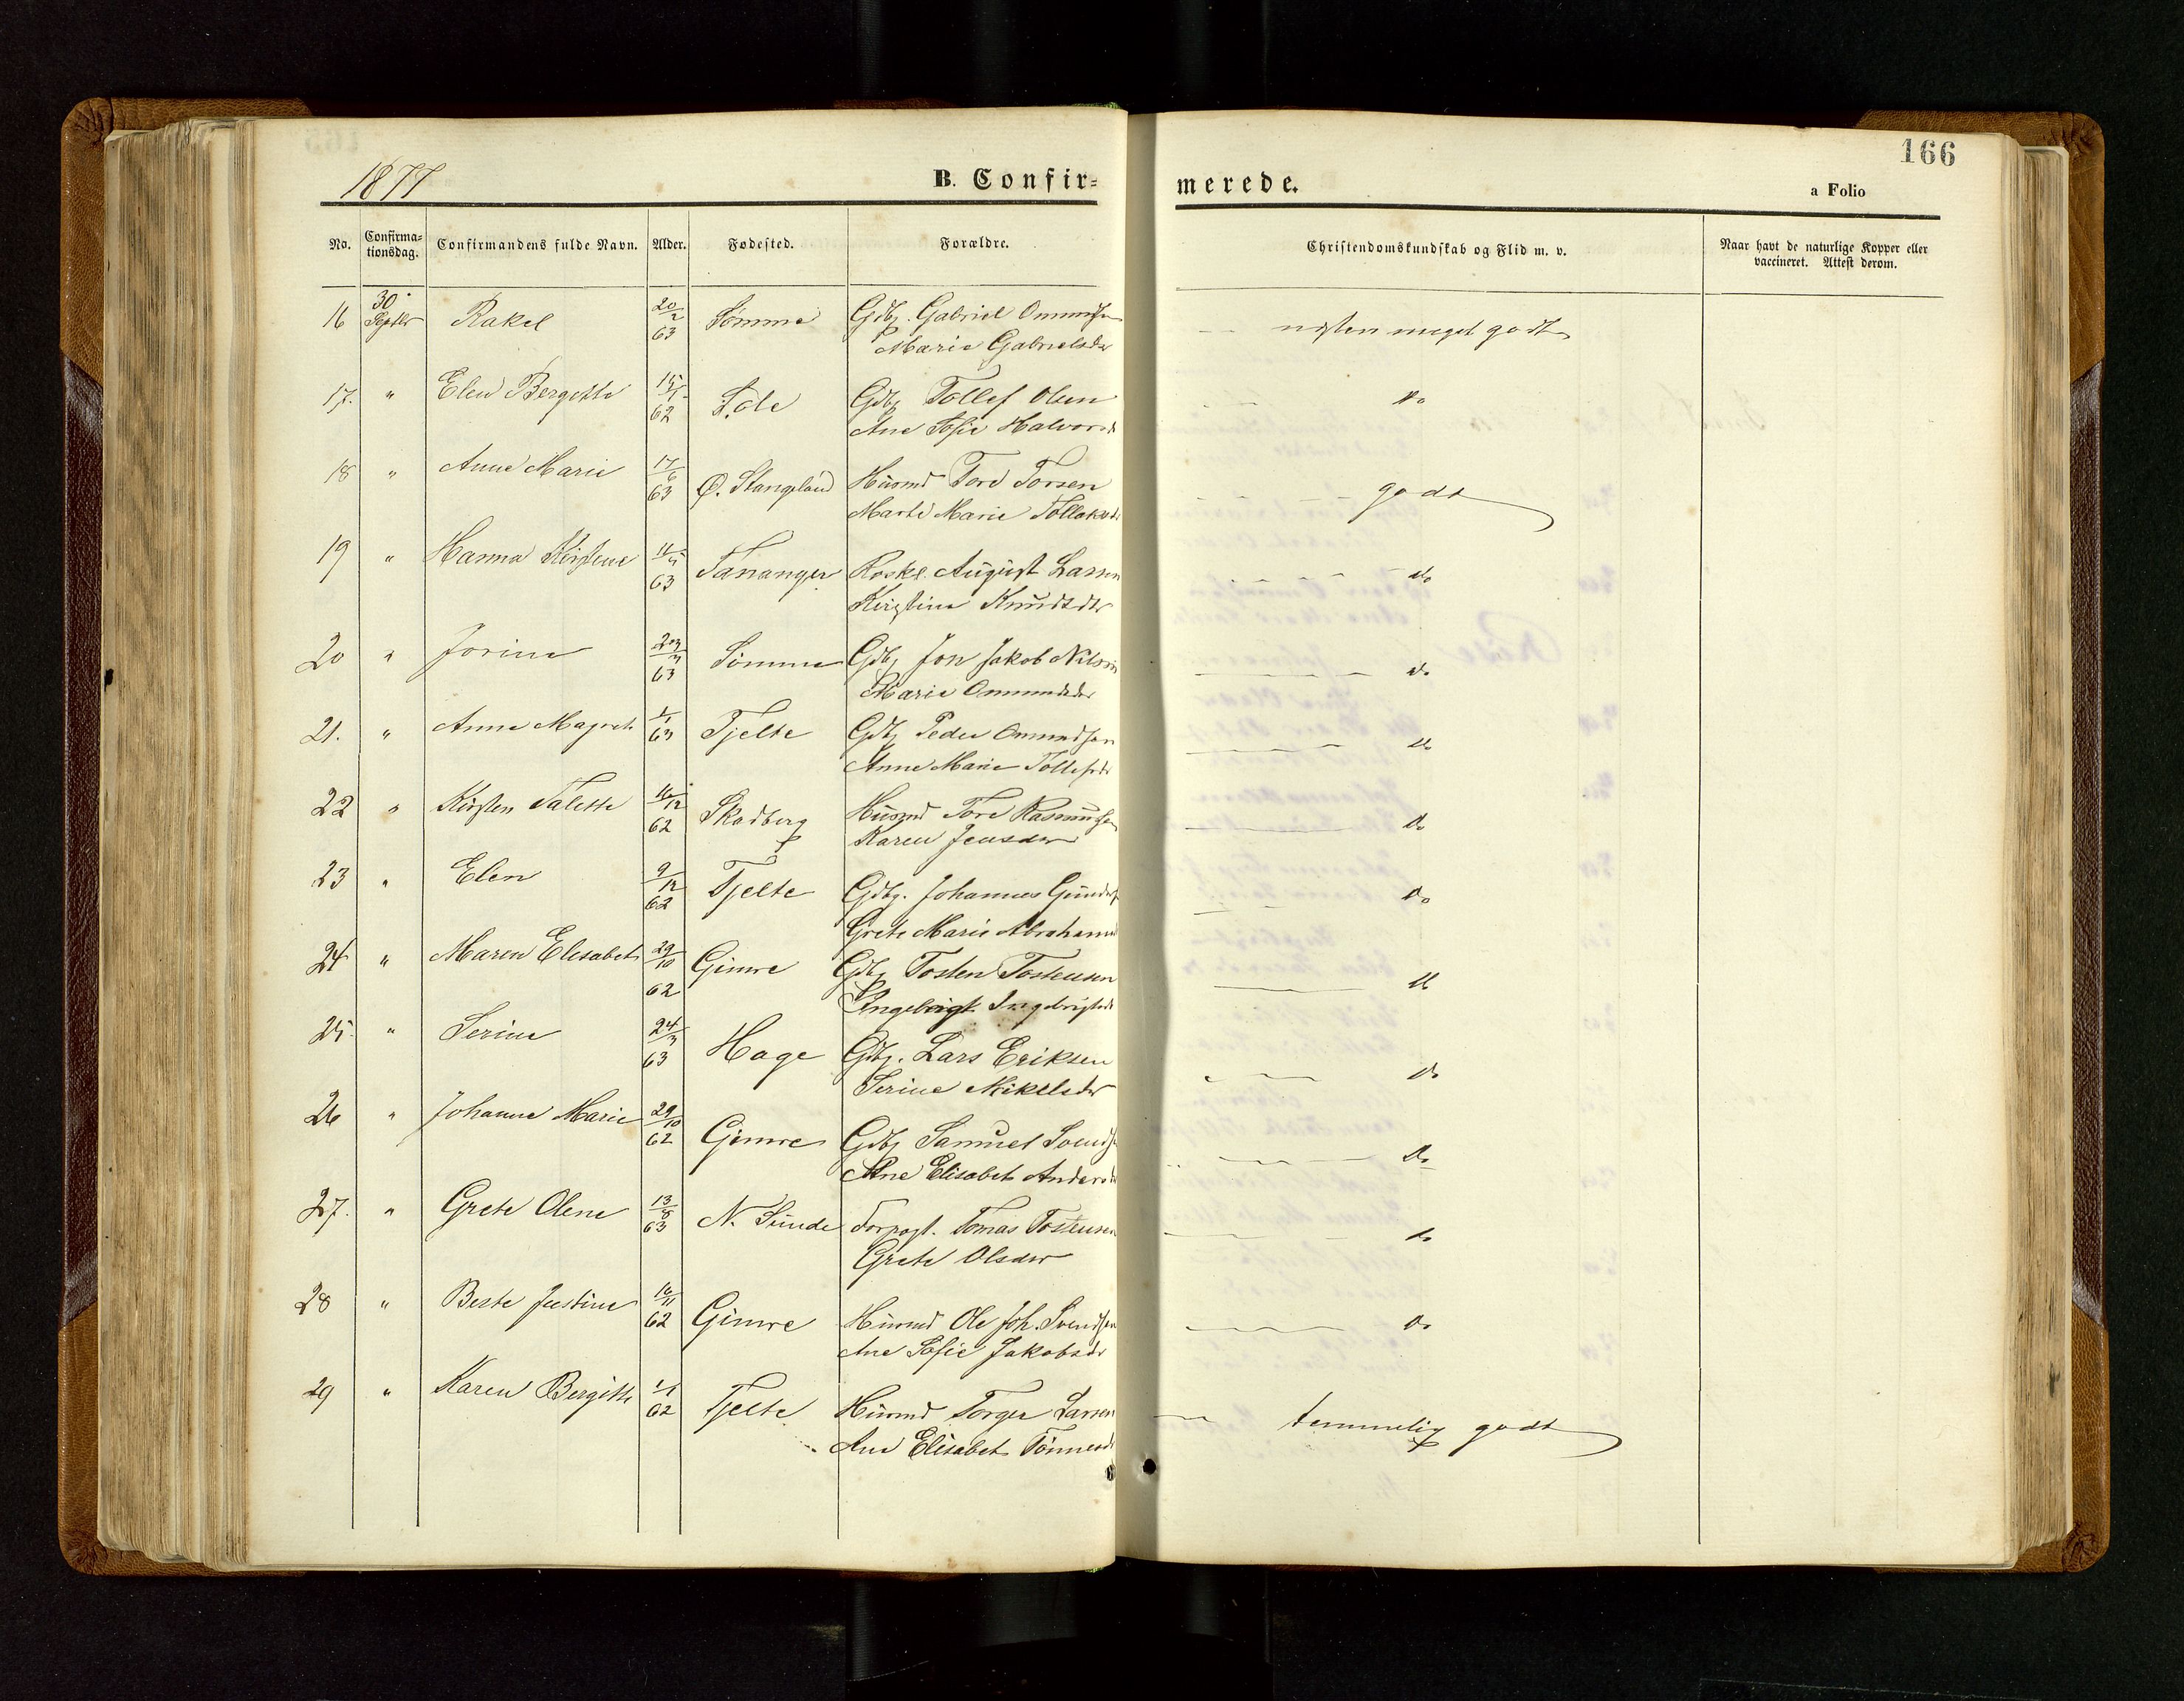 166
1877 B. Confirmerede. a Folio
No. Confirmationsdag. Confirmandens fulde Navn. Alder. Fødested. Forældre. Christendomskundskab og Flid m. v. Naar havt de naturlige Kopper eller vaccineret. Attest derom.
16 30 Septbr Rakel 20/2 63 Sømme Gdbr. Gabriel Ommundsen næsten meget godt
Marie Gabrielsdr
17. " Elen Bergitte 62 Sole Gdbr Tollef Olsen do
Ane Sofie Halvorsd
18 " Anne Marie 17/6 63 Ø. Stangeland Husmd Tore Torsen godt
Marte Marie Tollaksdr
19 " Hanna Kirstine 11/5 63 Tananger August Larsen do
Kirstine Knudsdtr
20 " Jorine 63 Sømme Gdbr Jon Jakob Nilsen do
Marie Ommundsdr
21. " Anna Magrete 1/1 63 Tjelte Gdbr Peder Ommundsen do
Anne Marie Tollefsdr
22 " Kirsten Talette 16/12 62 Skadberg Husmd Tore Rasmussen do
Karen Jensdr
23 " Elen 9/12 62 Tjelte Gdbr. Johannes Gunders do
Grete Marie Abrahamsd
24 " Maren Elisabet 29/10 62 Gimre Gdbr Tosten Tostensen do
Ingebrigt Ingebrigtsd
25. " Serine 24/3 63 Hage Gdbr. Lars Eriksen do
Serine Mikelsdr
26 " Johanne Marie 29/10 62 Gimre Gdbr Samuel Svends do
Ane Elisabet Andersd
27. " Grete Olene 13/8 63 N. Sunde Forpagt. Tomas Tostensen do
Grete Olsdr
28 " Berte Justine 16/11 62 Gimre Husmd Ole Joh. Svendsen do
Ane Sofie Jakobsdr
29 " Karen Bergitte 1/1 62 Tjelte Husmd Torger Larsen temmelig godt
Ane Elisabet Tønnesd